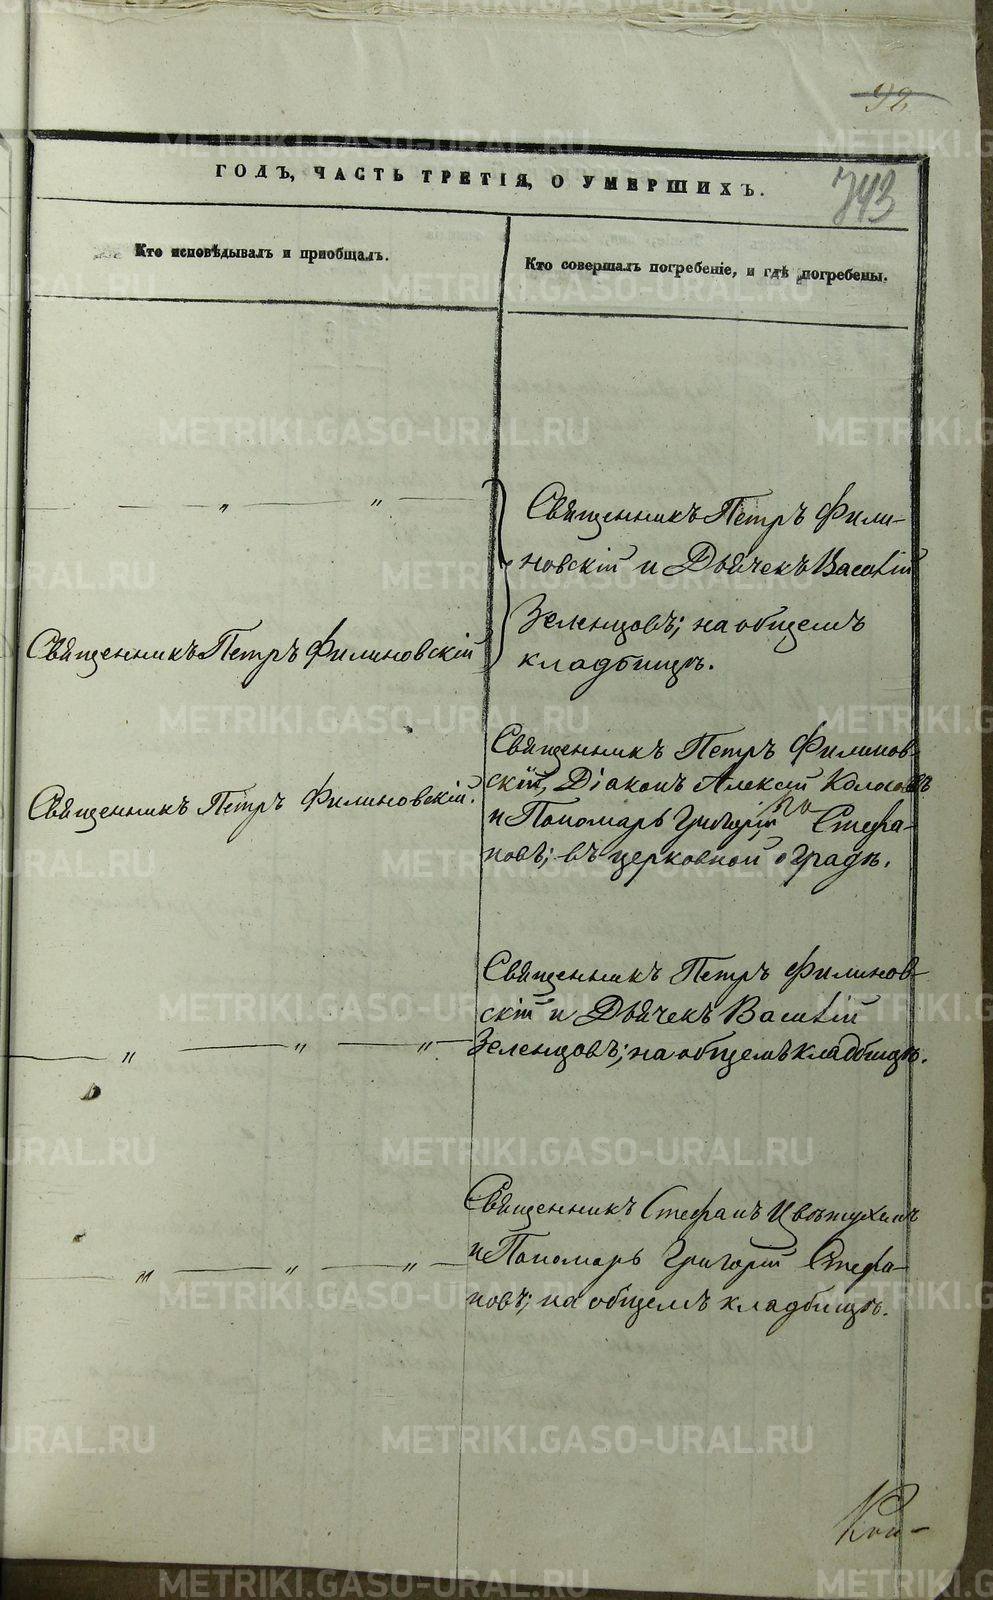 92
ГОДЪ, ЧАСТЬ ТРЕТІЯ, О УМЕРШИХЪ.
743
Кто исповѣдывалъ и пріобщалъ.
Кто совершалъ погребеніе, и гдѣ погребены.
— „ — „ —
Священникъ Петръ Фили-
новскій и Дьячекъ Василій
Зеленцовъ; на общемъ
кладбищѣ.
Священникъ Петръ Филиновскій
Священникъ Петръ Филиновскій.
Священникъ Петръ Филинов-
скій, Діаконъ Алексій Колосовъ
и Пономарь Григорій Стефа-
новъ; въ церковной оградѣ.
— „ — „ — „ —
Священникъ Петръ Филинов-
скій и Дьячекъ Василій
Зеленцовъ; на общемъ кладбищѣ.
— „ — „ — „ —
Священникъ Стефанъ Цвѣтухинъ
и Пономарь Григорій Стефа-
новъ; на общемъ кладбищѣ.
METRIKI.GASO-URAL.RU